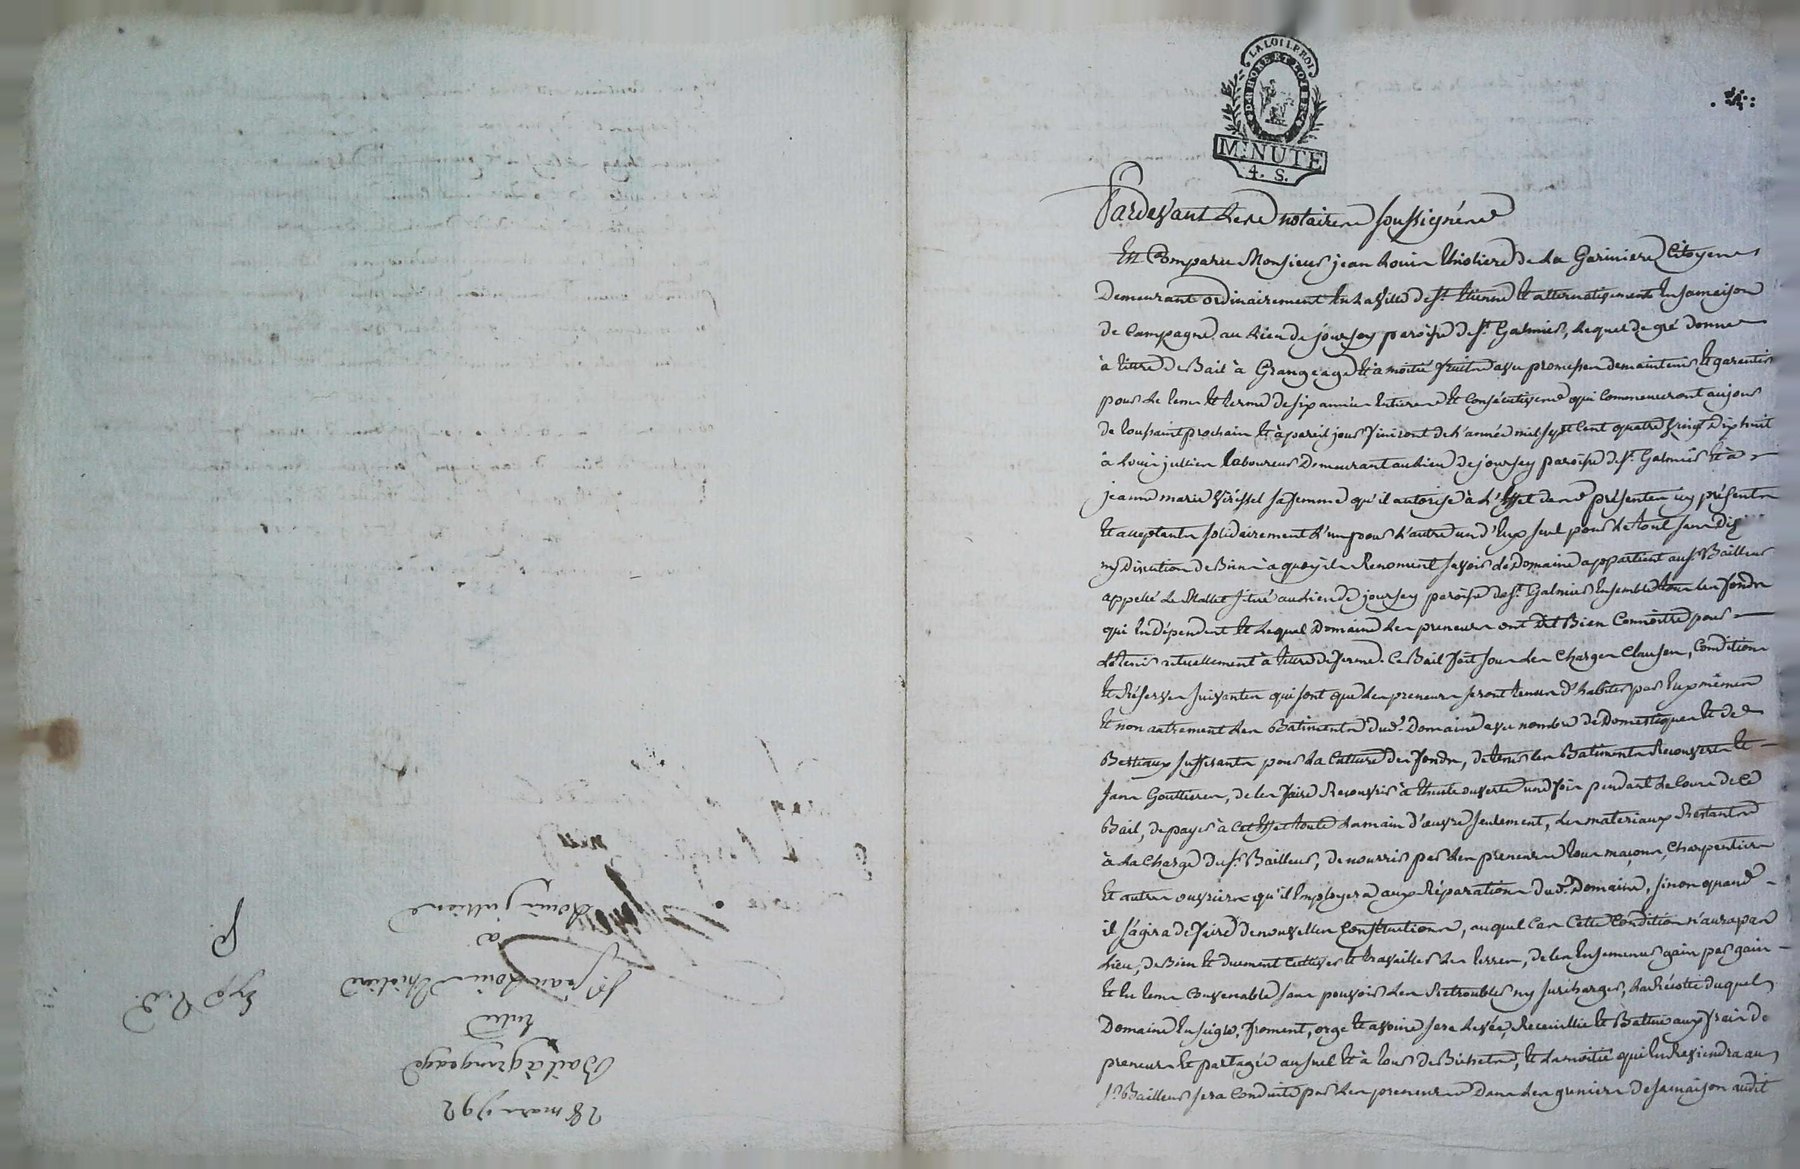 28 mars 1792
Bail à grangeage
Entre
Sr. jean Louis Thiolière
a
Louis jullien
Exp. P. d.
LA LOI LE ROI
D. RHONE ET LOIRE
MINUTE
4. S.
Pardevant Les notaires soussignés
Est Comparu Monsieur jean Louis Thioliere de La Gariniere Citoyen
Demeurant ordinairement En La Ville de St. Etienne Et alternativement En sa maison
de Campagne au Lieu de joursey paroisse de St. Galmier, Lequel de gré donne
à titre de Bail à Grangeage Et à moitié fruits avec promesse de maintenir Et garentir
pour Le tems Et terme de six années Entieres Et Consécutives qui Commenceront au jour
de toussaint prochain Et à pareil jour finiront de L'année mil sept Cent quatre Vingt Dix huit
à Louis jullien Laboureur Demeurant au Lieu de joursey paroisse de St. Galmier Et à
jeanne marie sa femme qu'il autorise à L'Effet des présentes icy présents
Et acceptants solidairement L'un pour L'autre un d'Eux seul pour Le tout sans
ny Discution de Biens à quoy ils Renoncent savoir Le Domaine appartient au sr. Bailleur
appellé Le Mallet situé au Lieu de joursey paroisse de St. Galmier Ensemble tous les fonds
qui En Dépendent Et Lequel Domaine Les preneurs ont dit Bien Connoitre pour
Le tenir actuellement à titre de ferme. Ce Bail fait sous Les Charges Clauses, Conditions
Et Réserves suivantes qui sont que Les preneurs seront tenus d'habiter par Eux mêmes
Et non autrement Les Batiments dud. Domaine avec nombre de Domestiques Et de
Bestiaux suffisants pour La Culture des fonds, de tenir Les Batiments Recouverts Et
sans Gouttieres, de les faire Recouvrir à thuile ouverte une fois pendant Le Cours de Ce
Bail, de payer à Cet Effet toute La main d'œuvre seulement, Les materiaux Restants
à La Charge du sr. Bailleur, de nourrir par Les preneurs tous maçons, Charpentiers
Et autres ouvriers qu'il Employera aux Réparations dud. Domaine, sinon quand
il s'agira de faire de nouvelles Constructions, auquel Cas Cette Condition n'aura pas
Lieu, de Bien Et duement Cultiver Et travailler Les terres, de les Ensemencer gain par gain
Et En tems Convenable sans pouvoir Les Retroubler ny surcharger, La Récolte duquel
Domaine En seigle, froment, orge Et avoine sera Levée, Receuillie Et Battue aux frais des
preneurs Et partagée au suel Et à tour de Bichet, Et La moitié qui En Reviendra au
sr. Bailleur sera Conduite par Les preneurs Dans Les greniers de sa maison audit